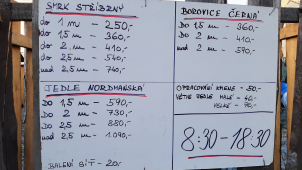 SMRK STŘÍBRNÝ
do 1 m - 250,-
do 1,5 m - 360,-
do 2 m - 410,-
do 2,5 m - 540,-
nad 2,5 m - 740,-
JEDLE NORDMANSKÁ
DO 1,5 m - 590,-
DO 2 m - 730,-
DO 2,5 m - 880,-
nad 2,5 m - 1.090,-
BALENÍ SÍŤ - 20,-
BOROVICE ČERNÁ
DO 1,5 m - 360,-
DO 2 m - 410,-
nad 2 m - 590,-
OPRACOVÁNÍ KMENE - 50,-
VĚTVE JEDLE MALÉ - 40,-
VELKÉ - 70,-
8:30-18:30